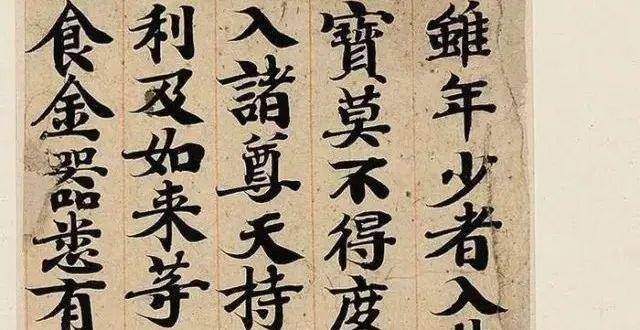 雖年少者入
寶莫不得度
入諸尊天持
利及如来等
食金器悉有